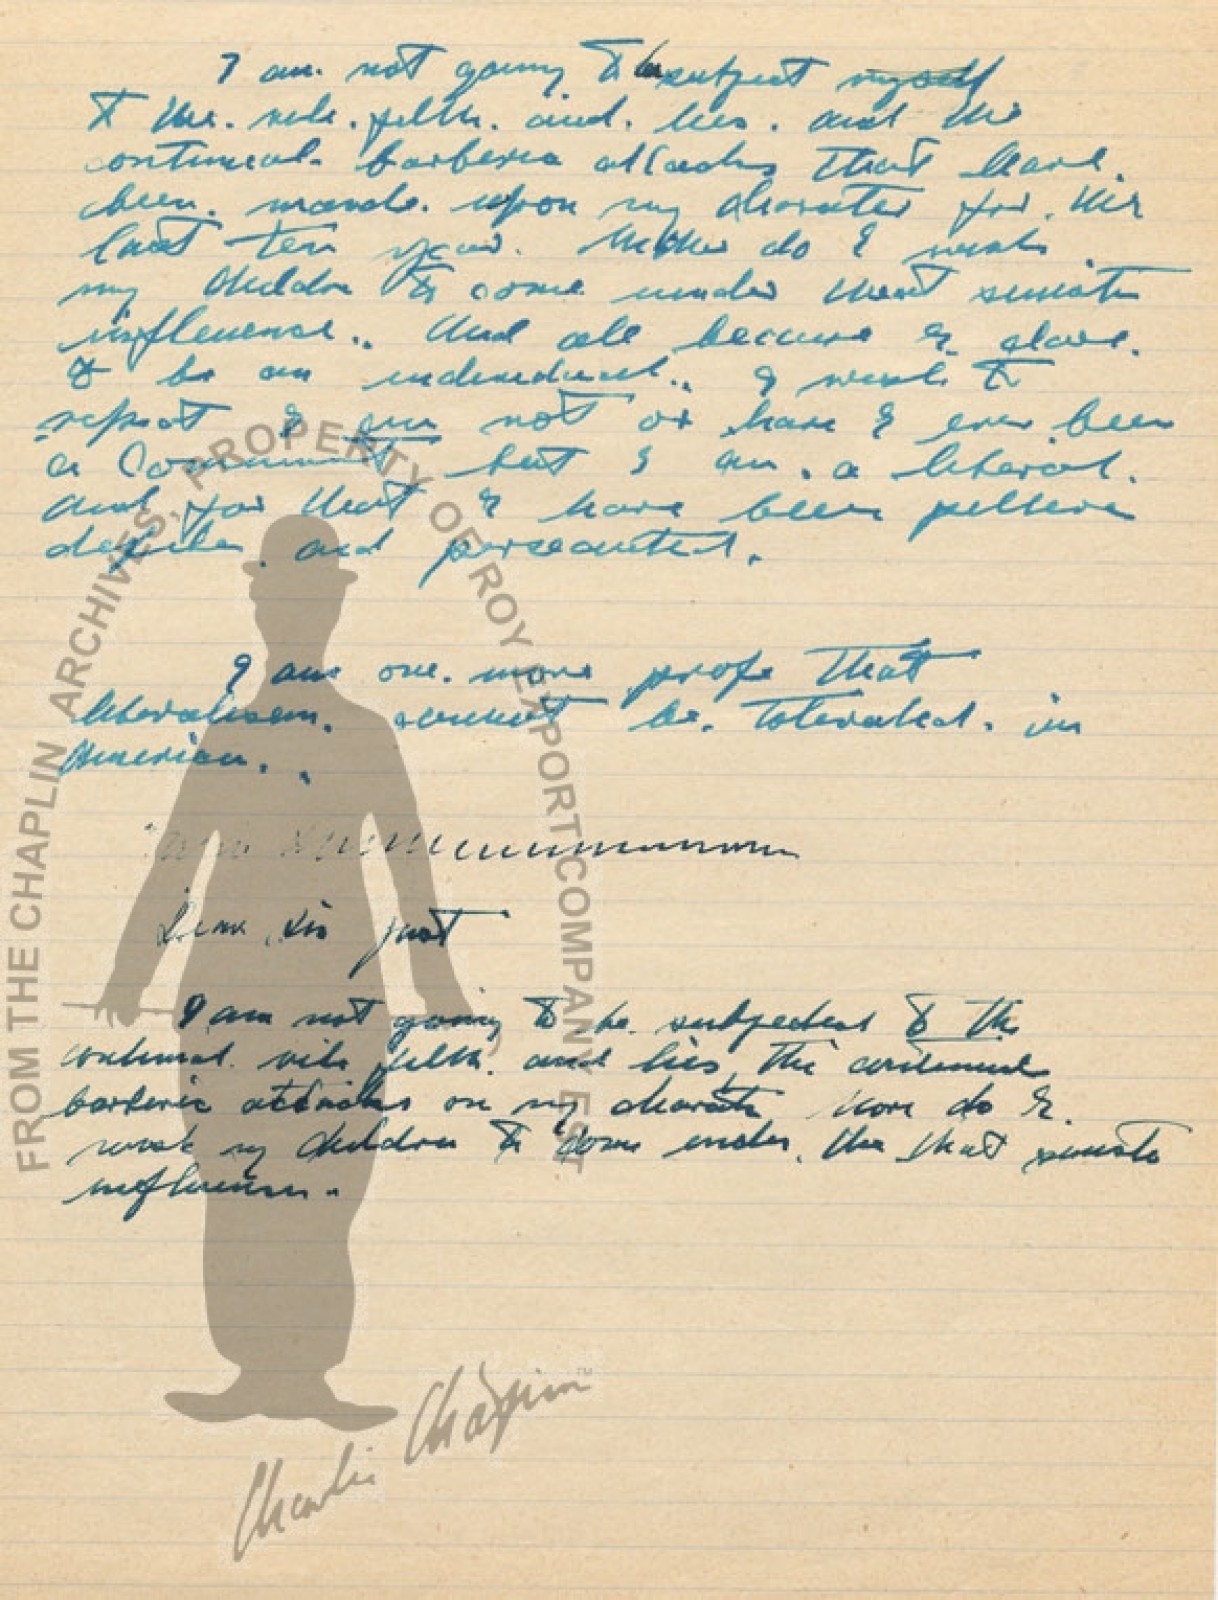 I am not going to be subject myself
to the vile filth and lies and the
continual barberic attacks that have
been made upon my charater for the
last ten year. Neither do I wish
my children to come under that sinister
influence.. And all because I dare
to be an individual.. I wish to
repeat I am not or have I ever been
a Communist but I am a liberal.
and for that I have been
and persecuted.
I am one more profe that
liberalism cannot be tolerated in
American..
Dear Sir just
I am not going to be subjected to the
continual vile filth and lies the continual
barberic attacks on my charater Nore do I
wish my children to come under the that sinister
influence.
FROM THE CHAPLIN ARCHIVES, PROPERTY OF ROY EXPORT COMPANY EST
Charlie Chaplin™